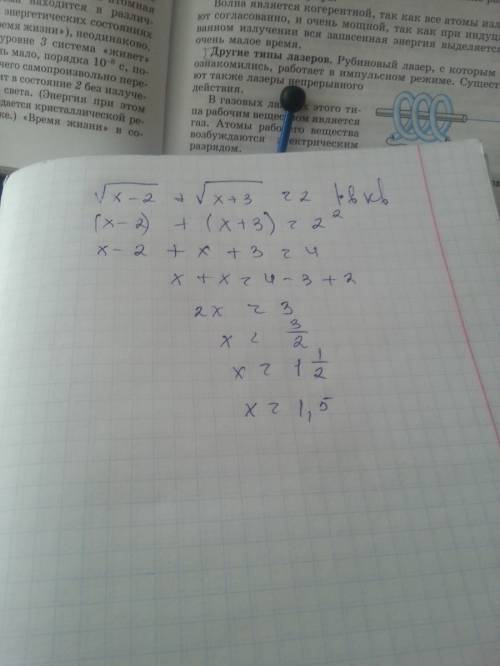 атомная
находится в различ-
энергетических состояниях
ремя жизни»), неодинаково,
уровне 3 система «живет»
ь мало, порядка 10⁻⁸ с, по-
чего самопроизвольно пере-
ит в состояние 2 без излуче-
света. (Энергия при этом
едается кристаллической ре-
ке.) «Время жизни» в со-
Волна является когерентной, так как все атомы излу
ют согласованно, и очень мощной, так как при индуци
ванном излучении вся запасенная энергия выделяется
очень малое время.
Другие типы лазеров. Рубиновый лазер, с которым
ознакомились, работает в импульсном режиме. Сущест
ют также лазеры непрерывного
действия.
В газовых этого ти-
па рабочим веществом является
газ. Атомы рабочего вещества
возбуждаются электрическим
разрядом.
√x-2 + √x+3 = 2
(x-2) + (x+3) = 2²
x-2 + x + 3 = 4
x + x = 4 - 3 + 2
2x = 3
x = 3/2
x = 1 1/2
x = 1,5